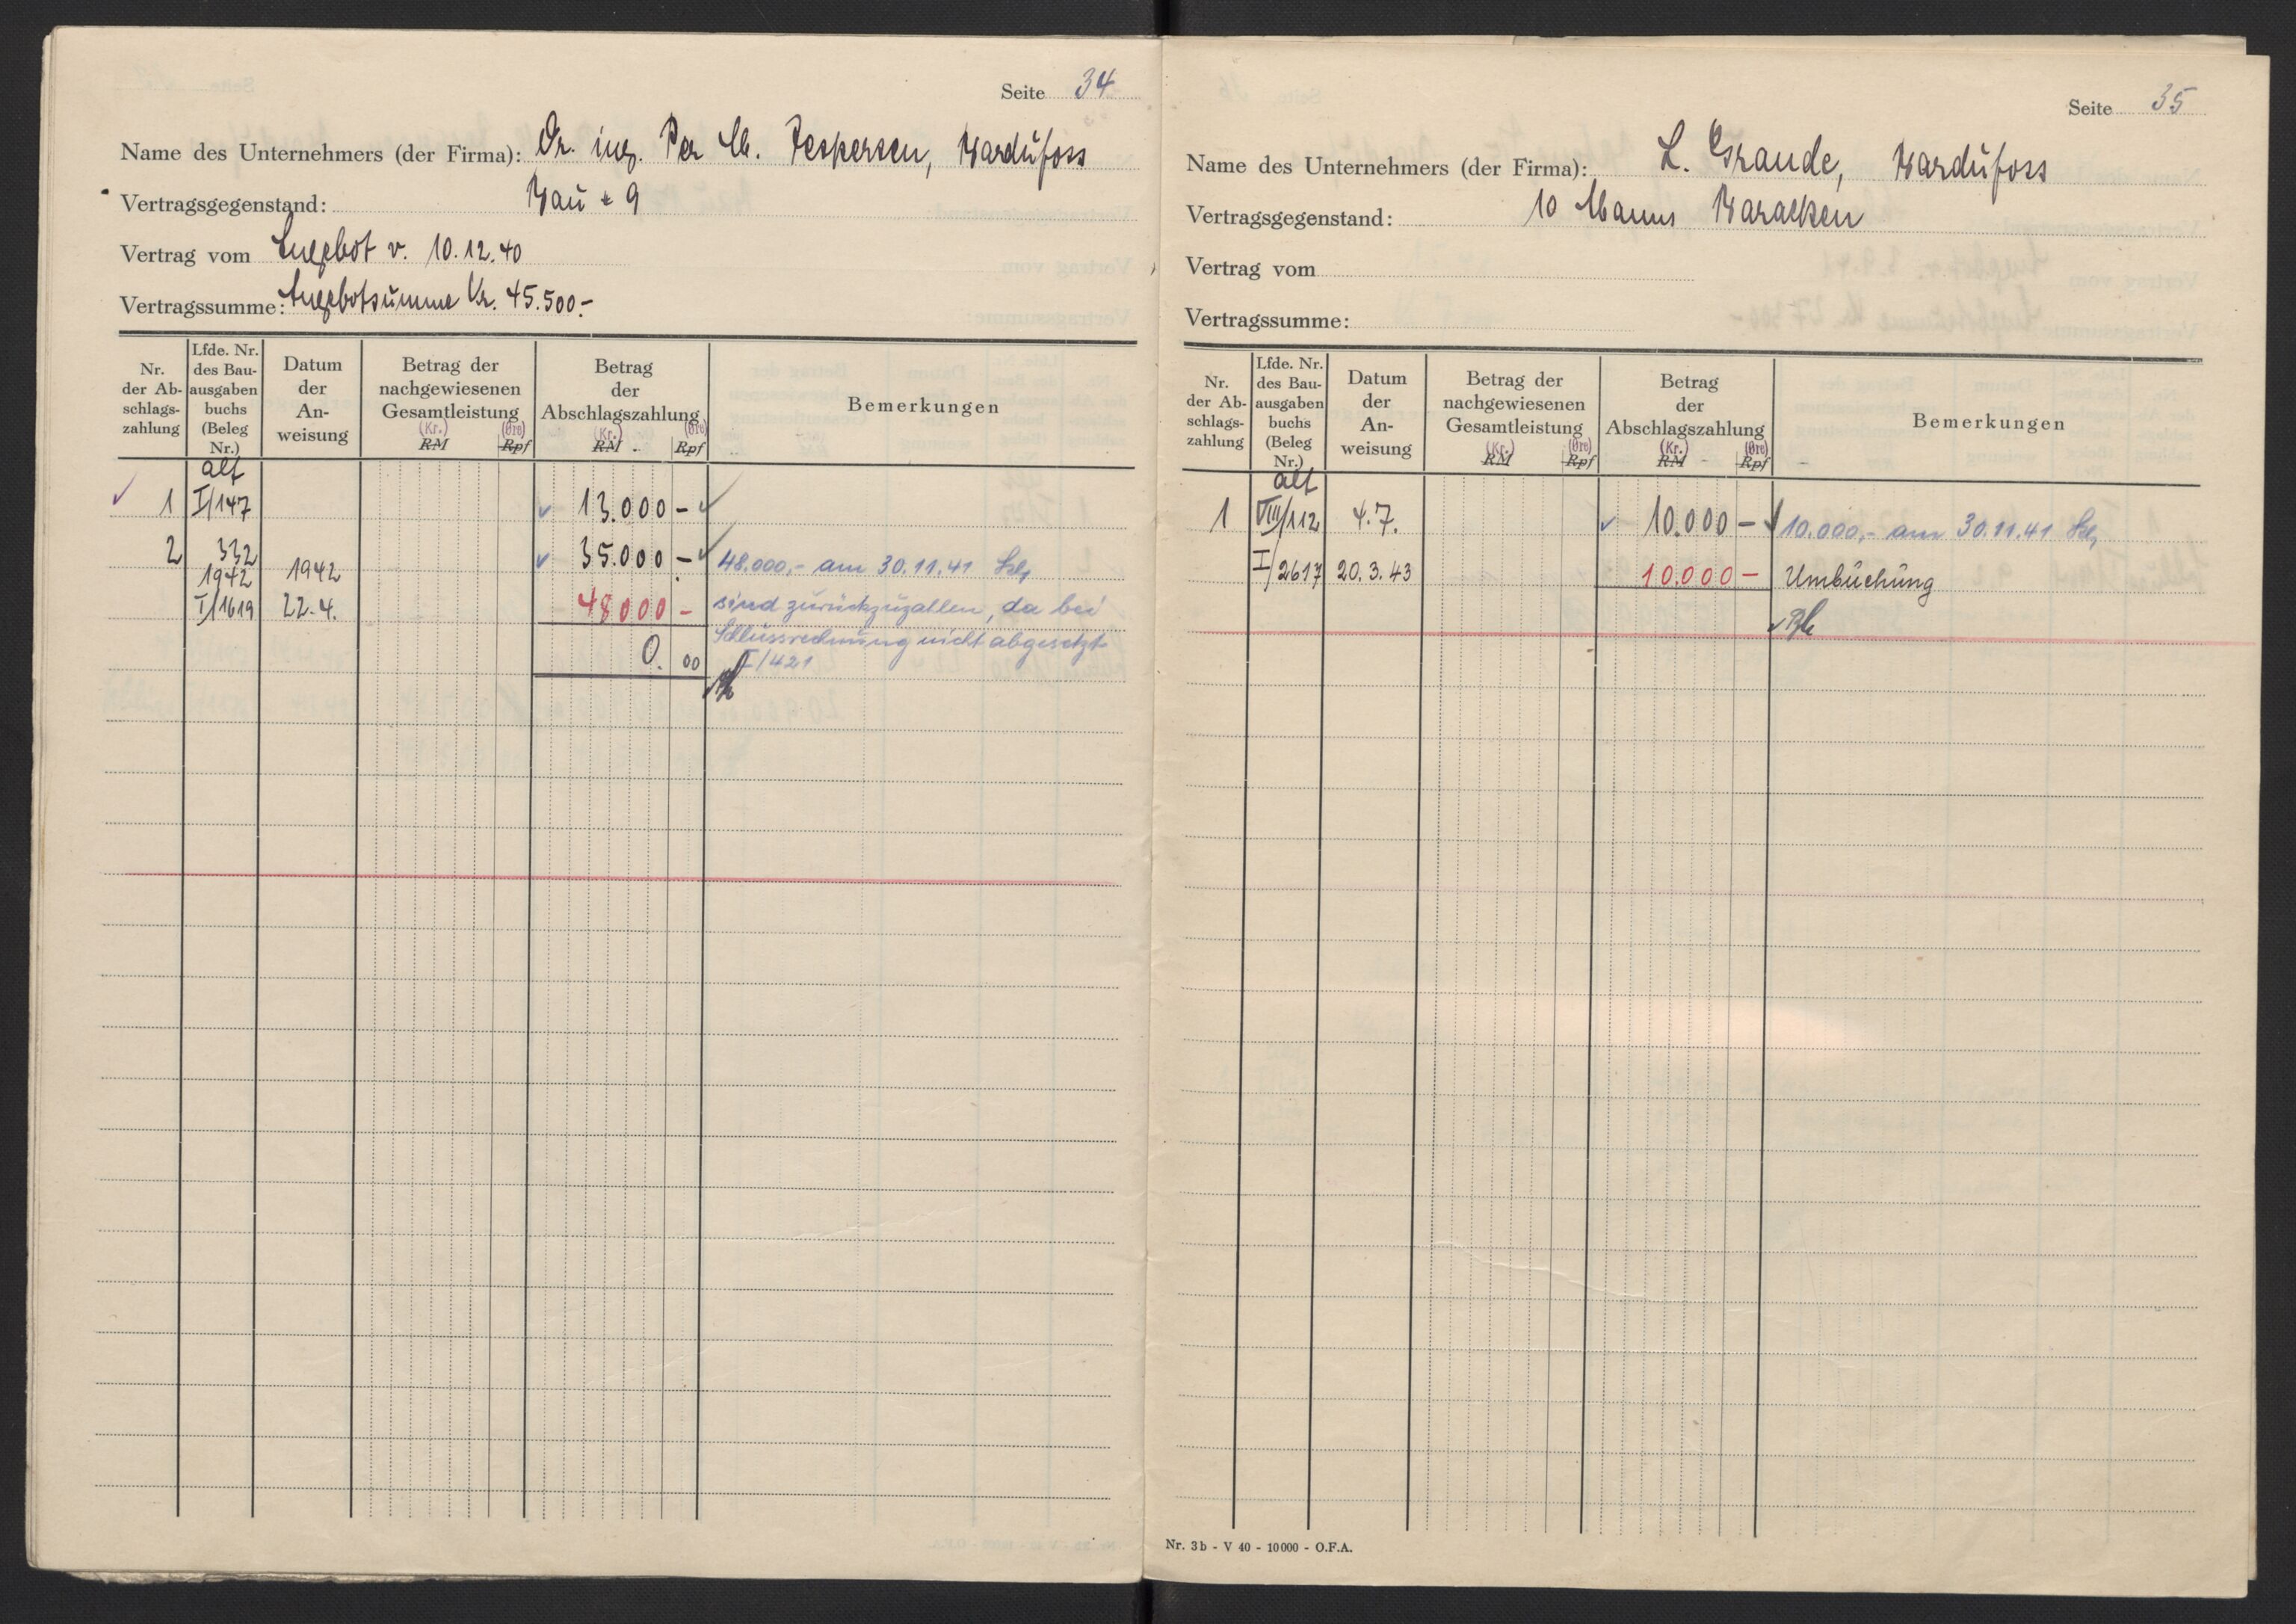 Seite 34
Name des Unternehmers (der Firma): Dr. ing. Per M. Jespersen, Bardufoss
Vertragsgegenstand: Bau + 9
Vertrag vom Angebot v. 10.12.40
Vertragssumme: Angebotsumme Kr. 45.500.-
Nr. der Abschlagszahlung
Lfde. Nr. des Bauausgabenbuchs (Beleg Nr.)
Datum der Anweisung
Betrag der nachgewiesenen Gesamtleistung (Kr.) RM (Øre) Rpf
Betrag der Abschlagszahlung (Kr.) RM (Øre) Rpf
Bemerkungen
alt
1 I/147 13.000 -
2 332 35.000 - 48.000,- am 30.11.41
1942 1942
I/1619 22.4. 48000 - sind zurückzuzallen, da bei
Schlussrechnung nicht abgesetzt
0. 00 I/421
Seite 35
Name des Unternehmers (der Firma): L. Grande, Bardufoss
Vertragsgegenstand: 10 Manns Baracken
Vertrag vom
Vertragssumme:
Nr. der Abschlagszahlung
Lfde. Nr. des Bauausgabenbuchs (Beleg Nr.)
Datum der Anweisung
Betrag der nachgewiesenen Gesamtleistung (Kr.) RM (Øre) Rpf
Betrag der Abschlagszahlung (Kr.) RM (Øre) Rpf
Bemerkungen
alt
1 VIII/112 4.7. 10.000 - 10.000,- am 30.11.41
I/2617 20.3.43 10.000 - Umbuchung
Nr. 3b - V 40 - 10000 - O.F.A.